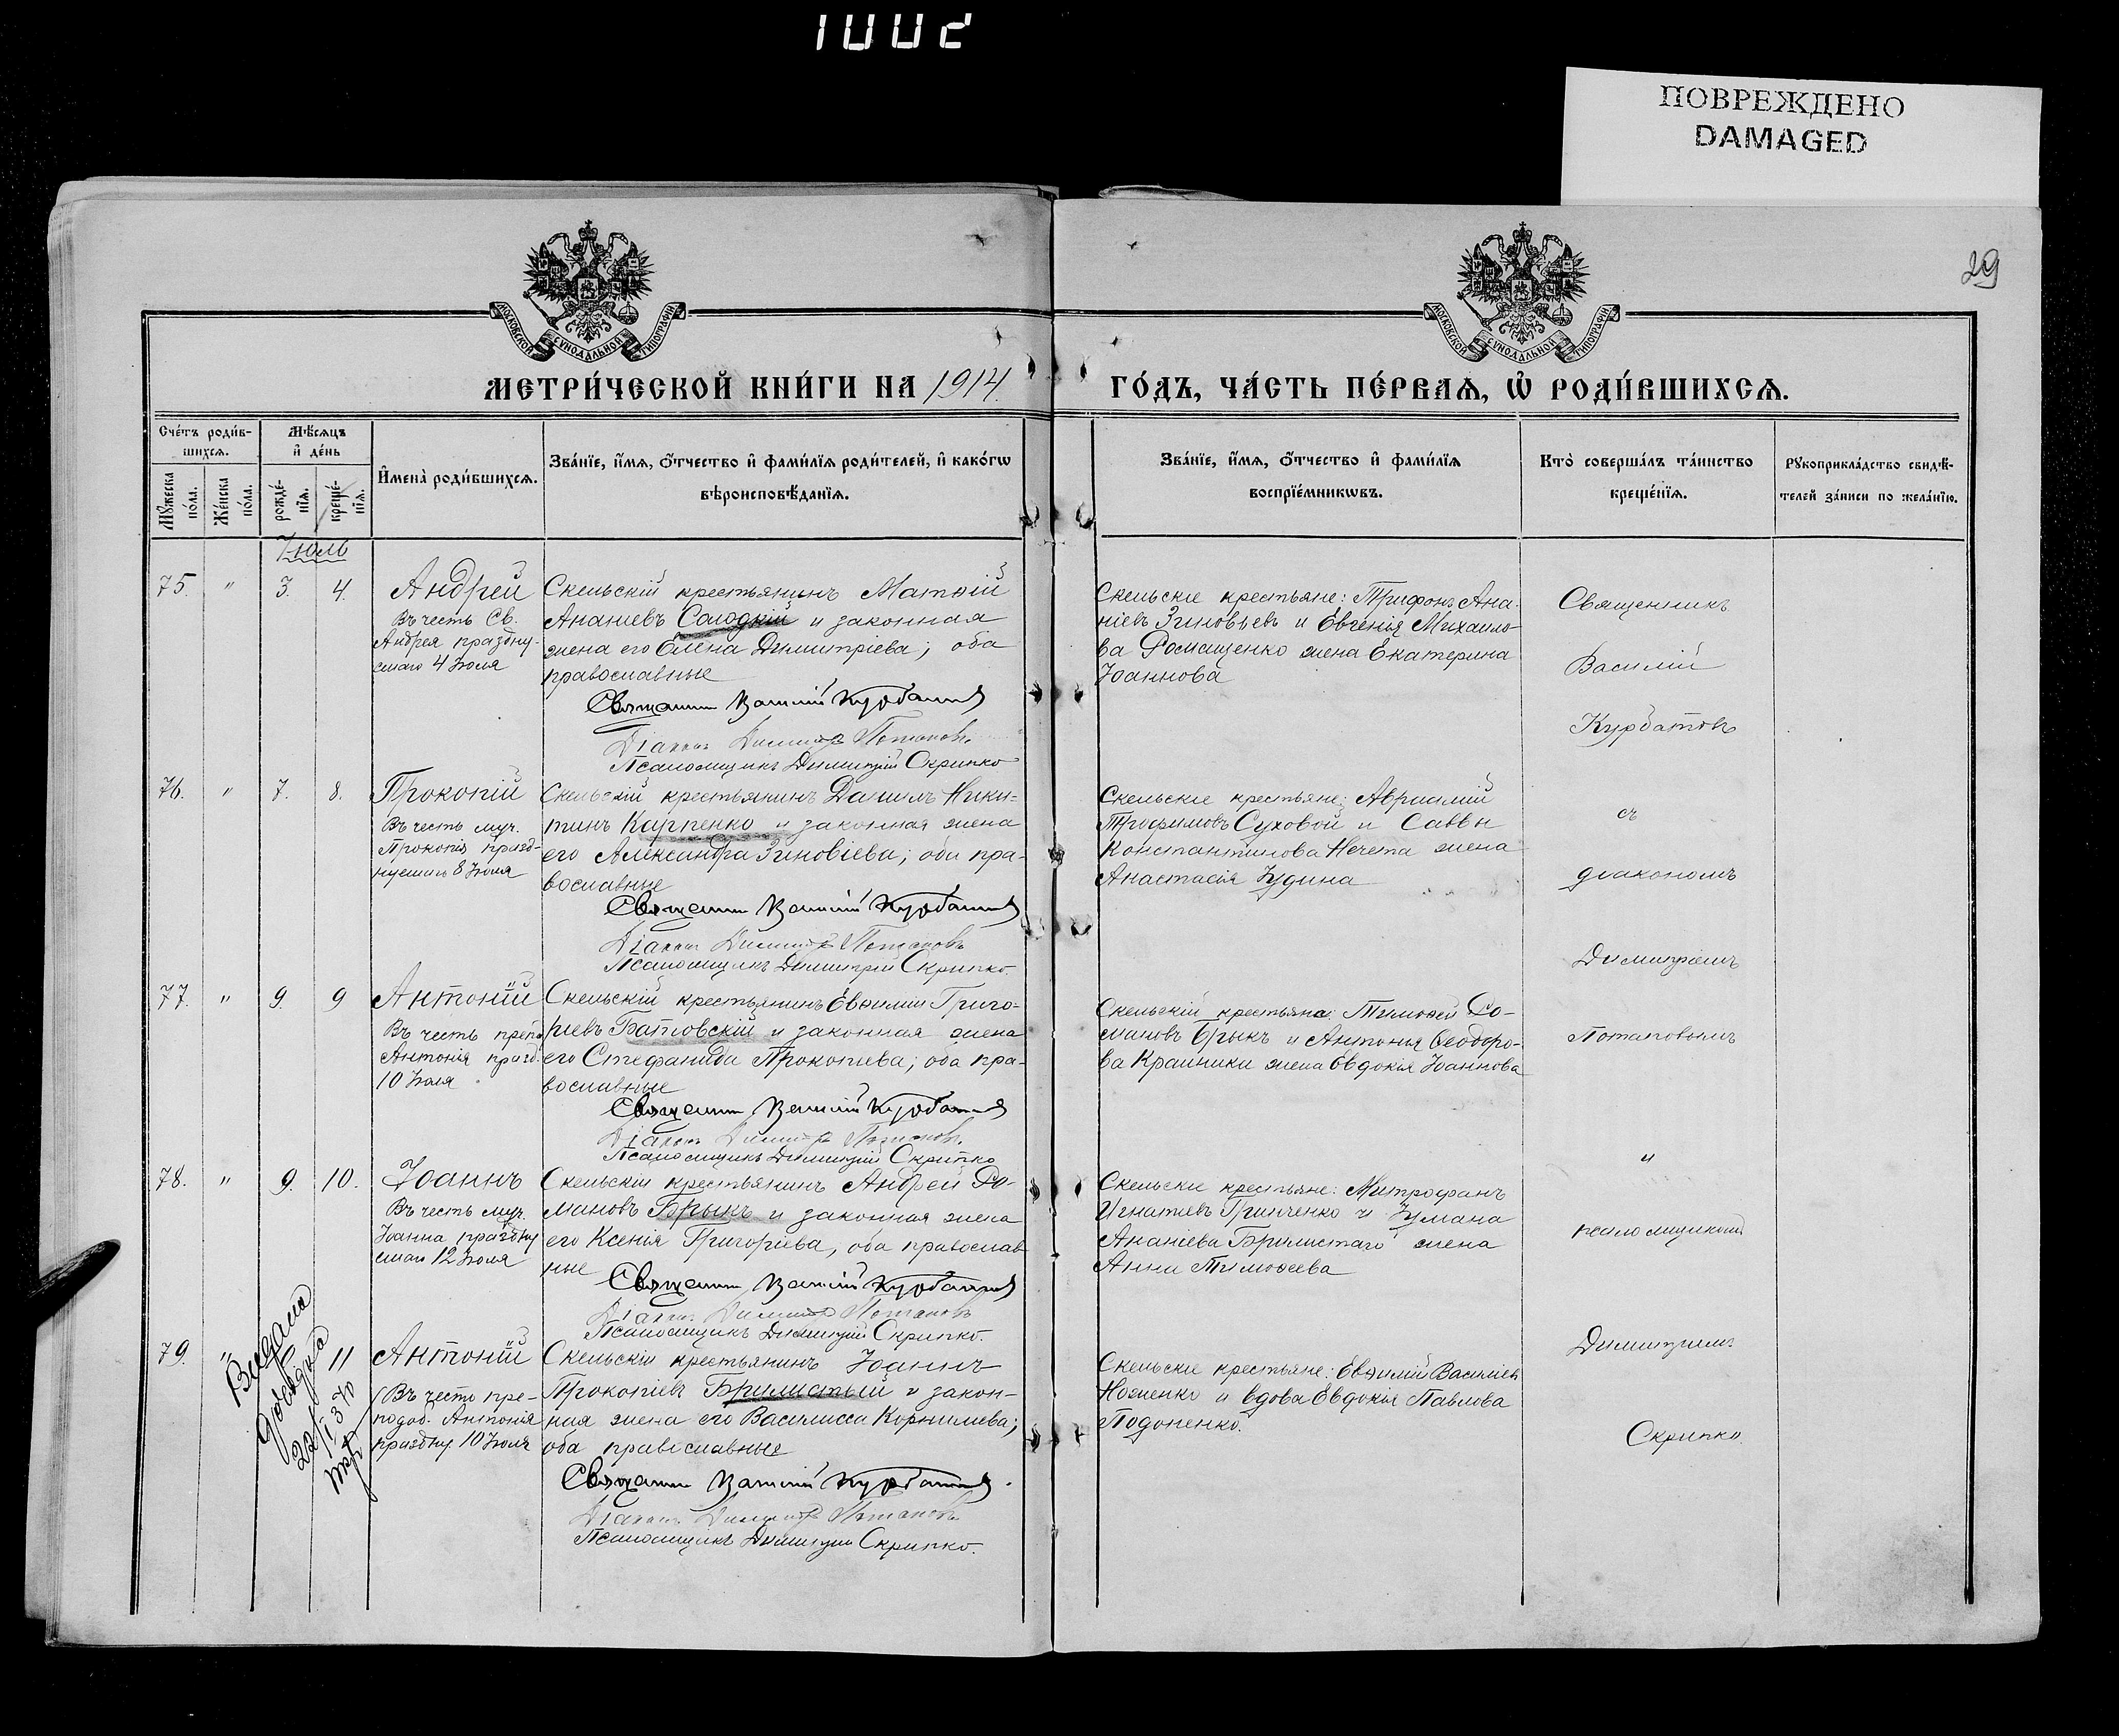 1002
ПОВРЕЖДЕНО
DAMAGED
29
МОСКОВСКОЙ СѴНОДАЛЬНОЙ ТИПОГРАФІИ
МОСКОВСКОЙ СѴНОДАЛЬНОЙ ТИПОГРАФІИ
МЕТРИ́ЧЕСКОЙ КНИ́ГИ НА 1914 ГО́ДЪ, ЧА́СТЬ ПЕ́РВАѦ, Ѡ҆ РОДИ́ВШИХСѦ.
Сче́тъ роди́в-
шихсѧ.
Мꙋжеска по́ла.
Же́нска по́ла.
Мѣ́сѧцъ
и҆ де́нь
рожде́-
нїѧ.
креще́-
нїѧ.
И҆мена̀ роди́вшихсѧ.
Зва́нїе, и҆́мѧ, ѻ҆́тчество и҆ фами́лїѧ роди́телей, и҆ како́гѡ
вѣроисповѣ́данїѧ.
Зва́нїе, и҆́мѧ, ѻ҆́тчество и҆ фами́лїѧ
воспрїе́мникѡвъ.
Кто̀ соверша́лъ та́инство
креще́нїѧ.
Рꙋкоприкла́дство свидѣ́-
телей за́писи по жела́нїю.
Іюль
75. " 3. 4.
Андрей
Въ честь Св.
Андрея праздну-
емаго 4 Іюля
Скельскій крестьянинъ Матѳій
Ананіевъ Солодкій и законная
жена его Елена Димитріева; оба
православные
Священникъ Василій Курбатовъ
Діаконъ Димитрій Потаповъ
Псаломщикъ Димитрій Скрипко
Скельскіе крестьяне: Трифонъ Ана-
ніевъ Зиновьевъ и Евгенія Михаило-
ва Ромащенко жена Екатерина
Іоаннова
Священникъ
Василій
Курбатовъ
76. " 7. 8.
Прокопій
Въ честь муч.
Прокопія празд-
нуемаго 8 Іюля
Скельскій крестьянинъ Даніилъ Ники-
тинъ Карпенко и законная жена
его Александра Зиновіева; оба пра-
вославные
Священникъ Василій Курбатовъ
Діаконъ Димитрій Потаповъ
Псаломщикъ Димитрій Скрипко.
Скельскіе крестьяне: Авраамій
Трофимовъ Суховой и Саввы
Константинова Нечета жена
Анастасія Іудина
съ
діакономъ
Димитріемъ
77. " 9. 9
Антоній
Въ честь преп.
Антонія празд.
10 Іюля
Скельскій крестьянинъ Евѳимій Григо-
ріевъ Батовскій и законная жена
его Стефанида Прокопіева; оба пра-
вославные
Священникъ Василій Курбатовъ
Діаконъ Димитрій Потаповъ
Псаломщикъ Димитрій Скрипко
Скельскій крестьяне: Тимоѳей Ро-
мановъ Брыкъ и Антонія Ѳеодоро-
ва Крайники жена Евдокія Іоаннова
Потаповымъ
и
78. " 9. 10.
Іоаннъ
Въ честь муч.
Іоанна праздну
емаго 12 Іюля
Скельскій крестьянинъ Андрей Ро-
мановъ Брыкъ и законная жена
его Ксенія Григоріева, оба православ
ные
Священникъ Василій Курбатовъ
Діаконъ Димитрій Потаповъ
Псаломщикъ Димитрій Скрипко.
Скельскіе крестьяне: Митрофанъ
Игнатіевъ Гринченко и
Ананіева Брилистаго жена
Анна Тимоѳеева
псаломщикомъ
Димитріемъ
79. " 11
Видана
довідка
22/I 370
Антоній
Въ честь пре-
подоб. Антонія
праздну 10 Іюля
Скельскій крестьянинъ Іоаннъ
Прокопіевъ Брилистый и закон-
ная жена его Василисса Корнилиева;
оба православные
Священникъ Василій Курбатовъ.
Діаконъ Димитрій Потаповъ
Псаломщикъ Димитрій Скрипко.
Скельскіе крестьяне: Евѳимій Василіев
Ноженко и вдова Евдокія Павлова
Подопенко.
Скрипко.